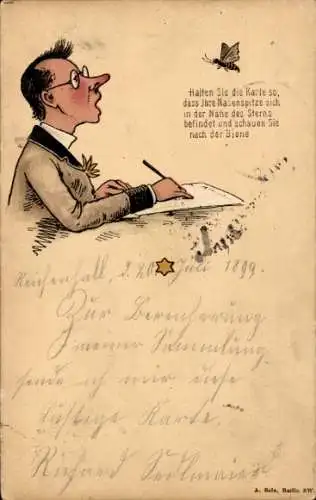 Halten Sie die Karte so,
dass Ihre Nasenspitze sich
in der Nähe des Sterns
befindet und schauen Sie
nach der Biene
Reichenhall, d. 20. Juli 1899.
Zur Bereicherung
meiner Sammlung
sende ich mir diese
lustige Karte.
Richard
A. Berlin SW.